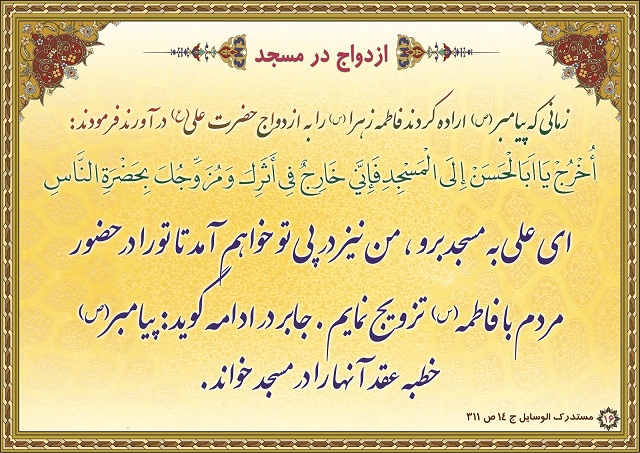 ازدواج در مسجد
زمانی که پیامبر (ص) اراده کردند فاطمه زهرا (س) را به ازدواج حضرت علی (ع) درآورند فرمودند:
أُخْرُجْ يَا أَبَا الْحَسَنِ إِلَى الْمَسْجِدِ فَإِنِّي خَارِجٌ فِي أَثَرِكَ وَ مُزَوِّجُكَ بِحَضْرَةِ النَّاسِ
ای علی به مسجد برو ، من نیز در پی تو خواهم آمد تا تو را در حضور
مردم با فاطمه (س) تزویج نمایم . جابر در ادامه گوید : پیامبر (ص)
خطبه عقد آنها را در مسجد خواند .
۱۶ مستدرک الوسایل ج ۱۴ ص ۳۱۱